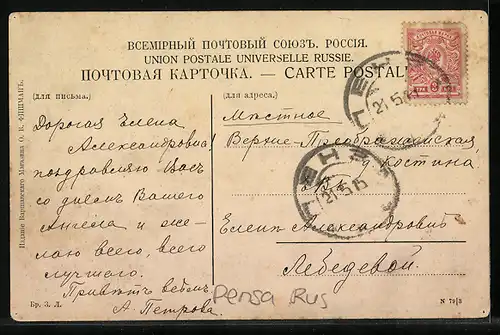 ВСЕМІРНЫЙ ПОЧТОВЫЙ СОЮЗЪ. РОССІЯ.
UNION POSTALE UNIVERSELLE RUSSIE.
ПОЧТОВАЯ КАРТОЧКА. — CARTE POSTALE
(для письма.)
Дорогая Елена
Александровна!
поздравляю Васъ
со днемъ Вашего
Ангела и же-
лаю всего, всего
лучшего.
Привѣтъ всѣмъ
А. Петрова.
(для адреса.)
Мѣстное
Верхне-Преображенская,
Костина
Еленѣ Александровнѣ
Лебедевой.
ПЕНЗА
21.5.15
ПЕНЗА
21.5.15
Pensa Rus
Бр. З. Л.
N 79/3
Изданіе Варшавскаго Магазина О. К. ФИШМАНЪ.